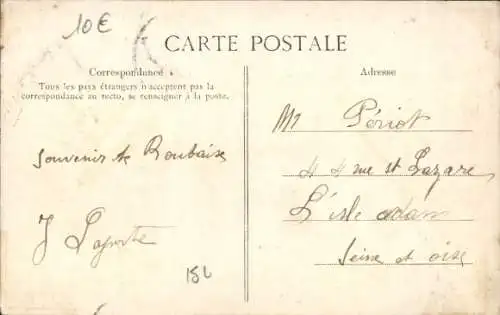 10€
CARTE POSTALE
Correspondance
Tous les pays étrangers n'acceptent pas la
correspondance au recto, se renseigner à la poste.
Souvenir de Roubaix
J Laporte
15L
Adresse
Mr Périot
44 rue St Lazare
L'isle adam
Seine et oise